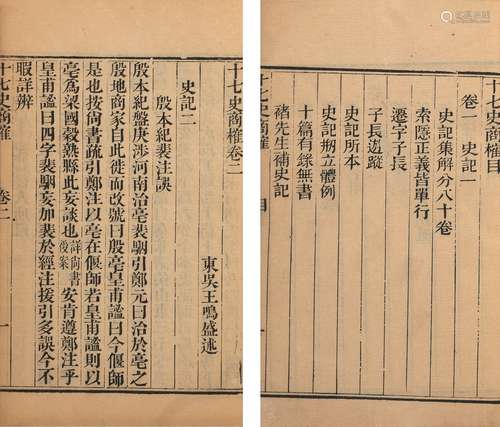 十七史商榷目
卷一 史記一
史記集解分八十卷
索隱正義皆單行
遷字子長
子長遊蹤
史記所本
史記剏立體例
十篇有錄無書
褚先生補史記
十七史商榷 目 一
十七史商榷卷二
東吳王鳴盛述
史記二
殷本紀裴注誤
殷本紀盤庚涉河南治亳裴駰引鄭元曰治於亳之
殷地商家自此徙而改號曰殷亳皇甫謐曰今偃師
是也按尚書疏引鄭注亳在偃師若皇甫謐則以
亳爲梁國穀熟縣此妄談也詳尚書後案安肯遵鄭注乎
皇甫謐曰四字裴駰妄加裴於經注援引多誤今不
暇詳辨
十七史商榷 卷二 一